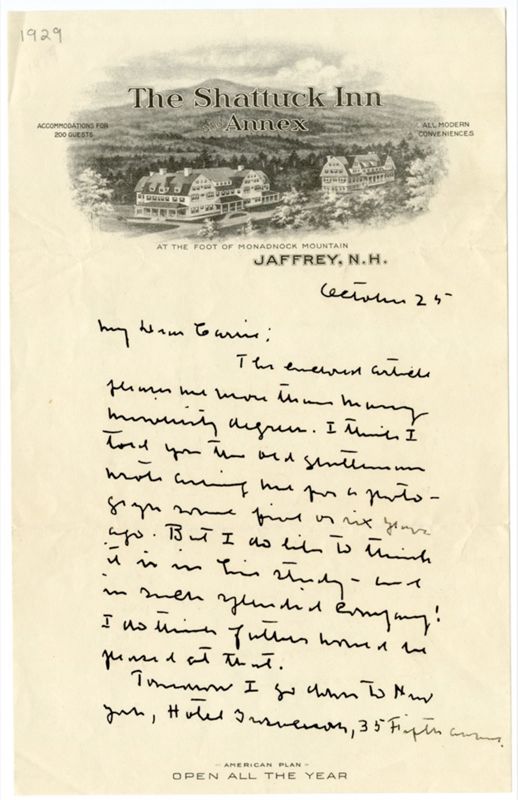 1929
The Shattuck Inn
and Annex
ACCOMMODATIONS FOR
200 GUESTS
ALL MODERN
CONVENIENCES
AT THE FOOT OF MONADNOCK MOUNTAIN
JAFFREY, N.H.
October 25
My Dear Carrie:
The enclosed article
pleases me more than many
university degrees. I think I
told you the old gentleman
wrote asking me for a photo-
graph some five or six years
ago. But I do like to think
it is in his study - and
in such splendid company!
I do think father would be
pleased at that.
Tomorrow I go down to New
York, Hotel Grosvenor, 35 Fifth Avenue.
- AMERICAN PLAN -
OPEN ALL THE YEAR